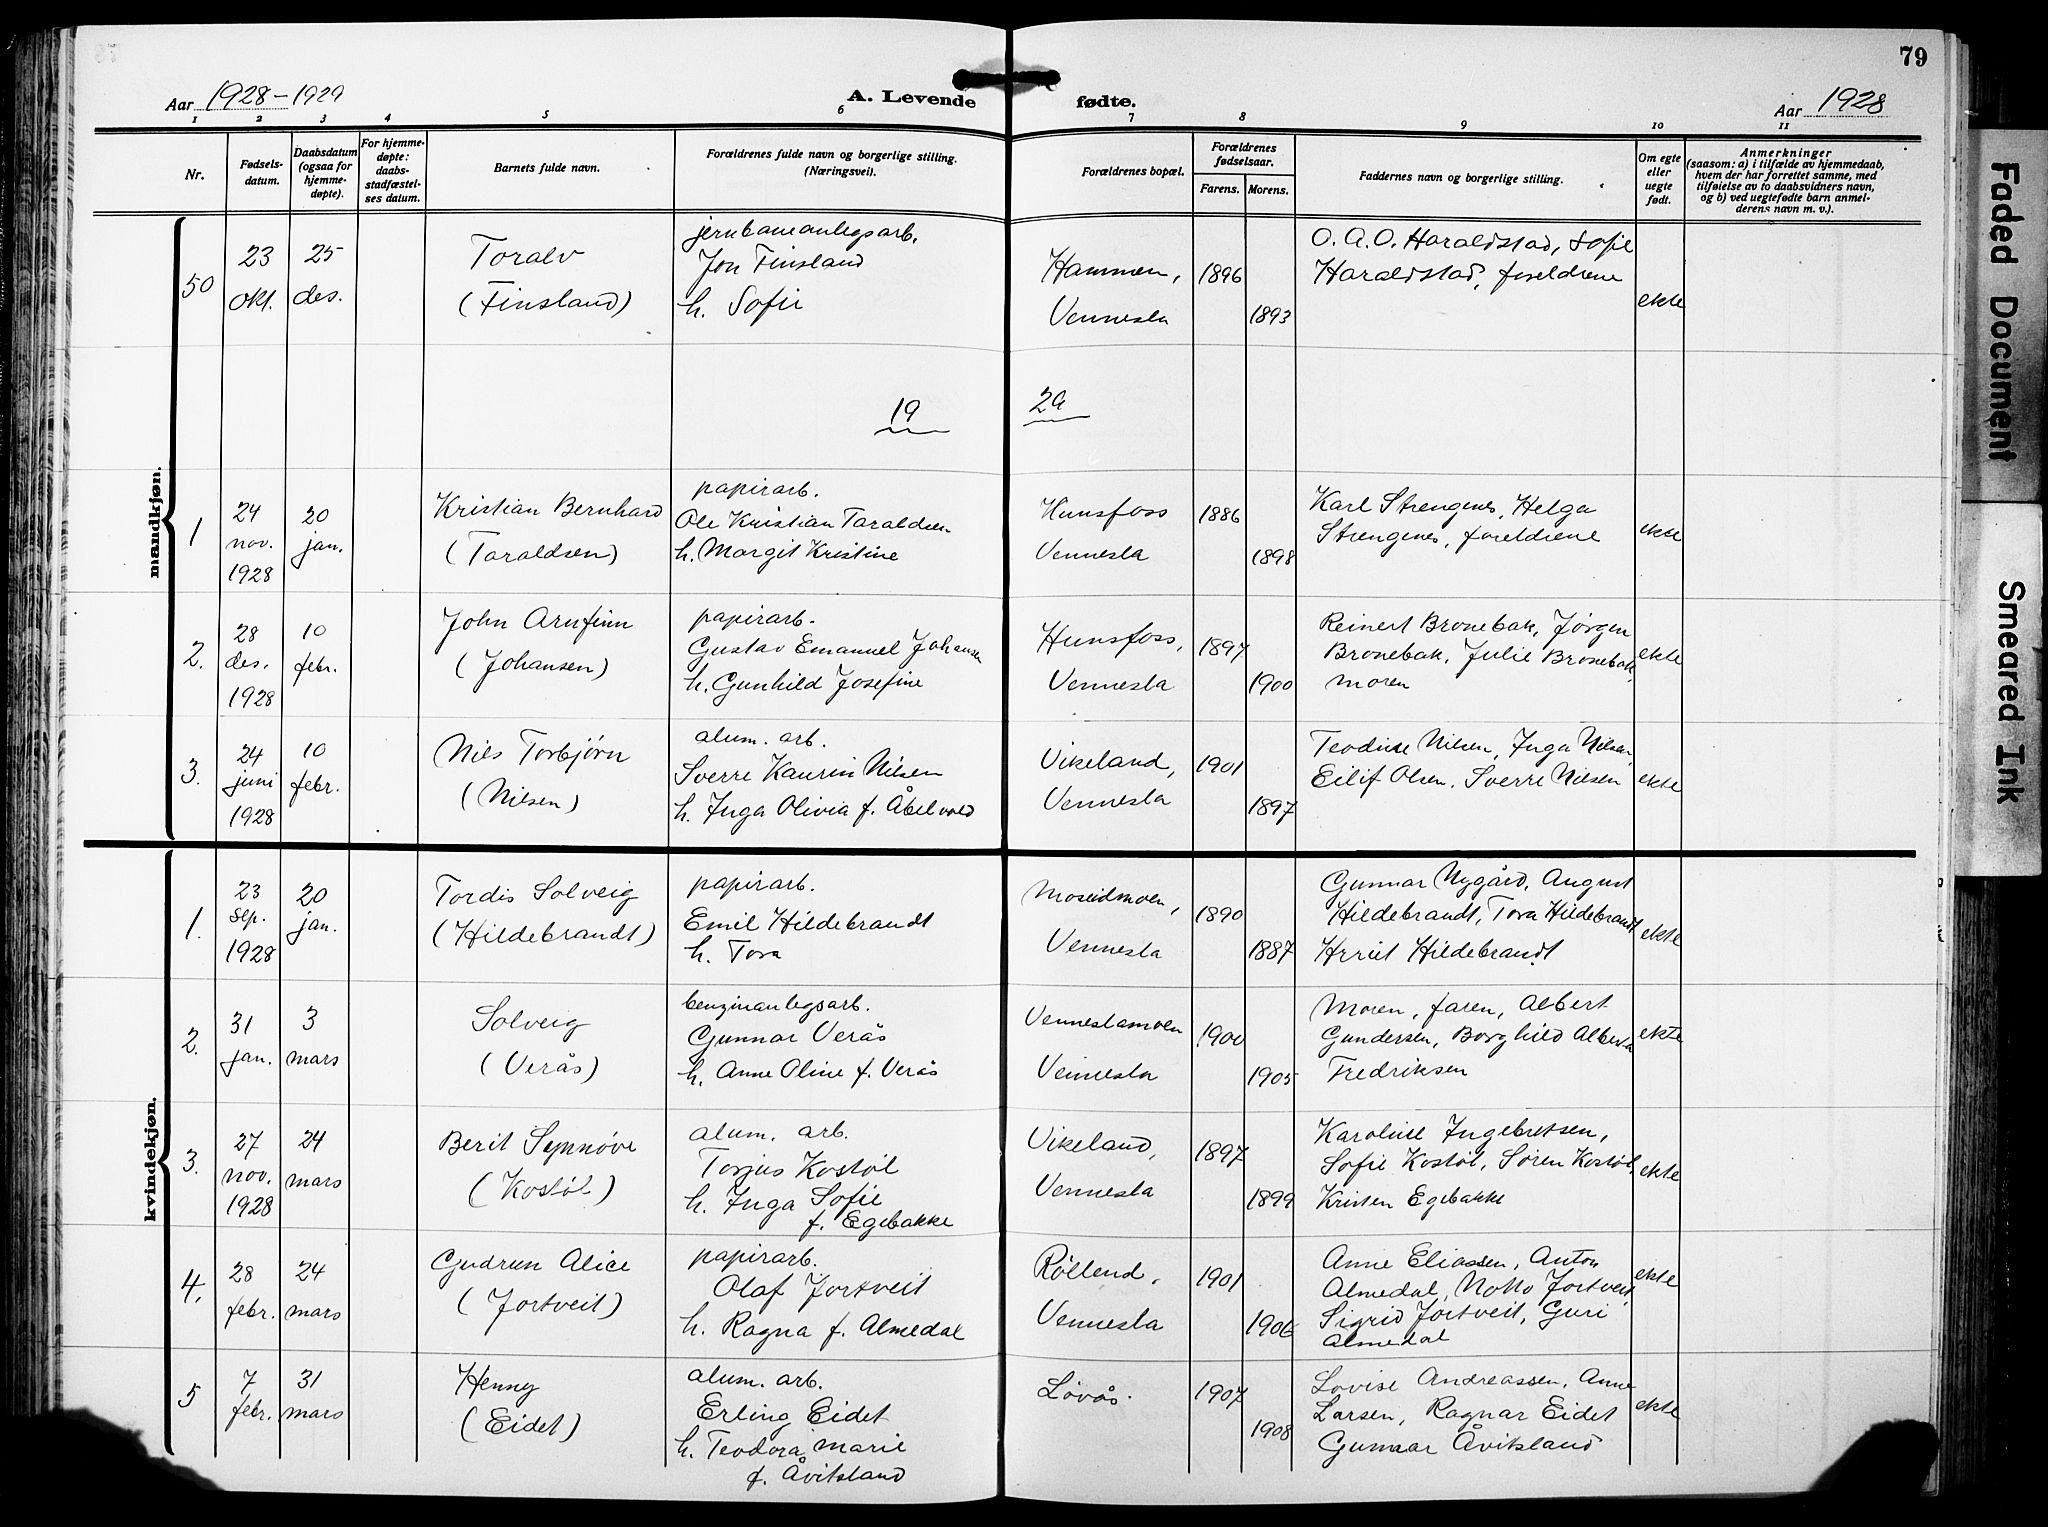 79
Aar 1928-1929
A. Levende fødte.
Aar 1928
1 2 3 4 5 6 7 8 9 10 11
Nr.
Fødsels-
datum.
Daabsdatum
(ogsaa for
hjemme-
døpte).
For hjemme-
døpte:
daabs-
stadfæstel-
ses datum.
Barnets fulde navn.
Forældrenes fulde navn og borgerlige stilling.
(Næringsvei).
Forældrenes bopæl.
Forældrenes
fødselsaar.
Farens. Morens.
Faddernes navn og borgerlige stilling.
Om egte
eller
uegte
født.
Anmerkninger
(saasom: a) i tilfælde av hjemmedaab,
hvem der har forrettet samme, med
tilføielse av to daabsvidners navn,
og b) ved uegtefødte barn anmel-
derens navn m. v.).
mandkjøn.
50
23
okt.
25
des.
Toralv
(Finsland)
jernbaneanlegsarb.
Jon Finsland
h. Sofie
Hammen,
Vennesla
1896
1893
O. A. O. Haraldstad, Sofie
Haraldstad, foreldrene
ekte
19 29
1
24
nov.
1928
20
jan.
Kristian Bernhard
(Taraldsen)
papirarb.
Ole Kristian Taraldsen
h. Margit Kristine
Hunsfoss
Vennesla
1886
1898
Karl Strengenes, Helga
Strengenes, foreldrene
ekte
2.
28
des.
1928
10
febr.
John Arnfinn
(Johansen)
papirarb.
Gustav Emanuel Johansen
h. Gunhild Josefine
Hunsfoss,
Vennesla
1897
1900
Reinert Bronebak, Jørgen
Bronebak, Julie Bronebak,
moren
ekte
3.
24
juni
1928
10
febr.
Nils Torbjørn
(Nilsen)
alum. arb.
Sverre Kaurin Nilsen
h. Inga Olivia f. Åbelvold
Vikeland,
Vennesla
1901
1897
Teodine Nilsen, Inga Nilsen,
Eilif Olsen, Sverre Nilsen
ekte
kvindekjøn.
1.
23
sep.
1928
20
jan.
Tordis Solveig
(Hildebrandt)
papirarb.
Emil Hildebrandt
h. Tora
Moseidmoen,
Vennesla
1890
1887
Gunnar Nygård, August
Hildebrandt, Tora Hildebrandt
Hildebrandt
ekte
2.
31
jan.
3
mars
Solveig
(Verås)
benzinanlegsarb.
Gunnar Verås
h. Anne Oline f. Verås
Venneslamoen
Vennesla
1900
1905
Moren, faren, Albert
Gundersen, Borghild Alberta
Fredriksen
ekte
3.
27
nov.
1928
24
mars
Berit Synnøve
(Kostøl)
alum. arb.
Torjus Kostøl
h. Inga Sofie
f. Egebakke
Vikeland,
Vennesla
1897
1899
Karoline Ingebretsen,
Sofie Kostøl, Søren Kostøl,
Kristen Egebakke
ekte
4.
28
febr.
24
mars
Gudrun Alice
(Jortveit)
papirarb.
Olaf Jortveit
h. Ragna f. Almedal
Røllend,
Vennesla
1901
1906
Anne Eliassen, Anton
Almedal, Notto Jortveit,
Sigrid Jortveit, Guri
Almedal
ekte
5
7
febr.
31
mars
Henny
(Eidet)
alum. arb.
Erling Eidet
h. Teodora Marie
f. Åvitsland
Løvås.
1907
1908
Lovise Andreassen, Anne
Larsen, Ragnar Eidet
Gunnar Åvitsland
ekte
Faded Document
Smeared Ink